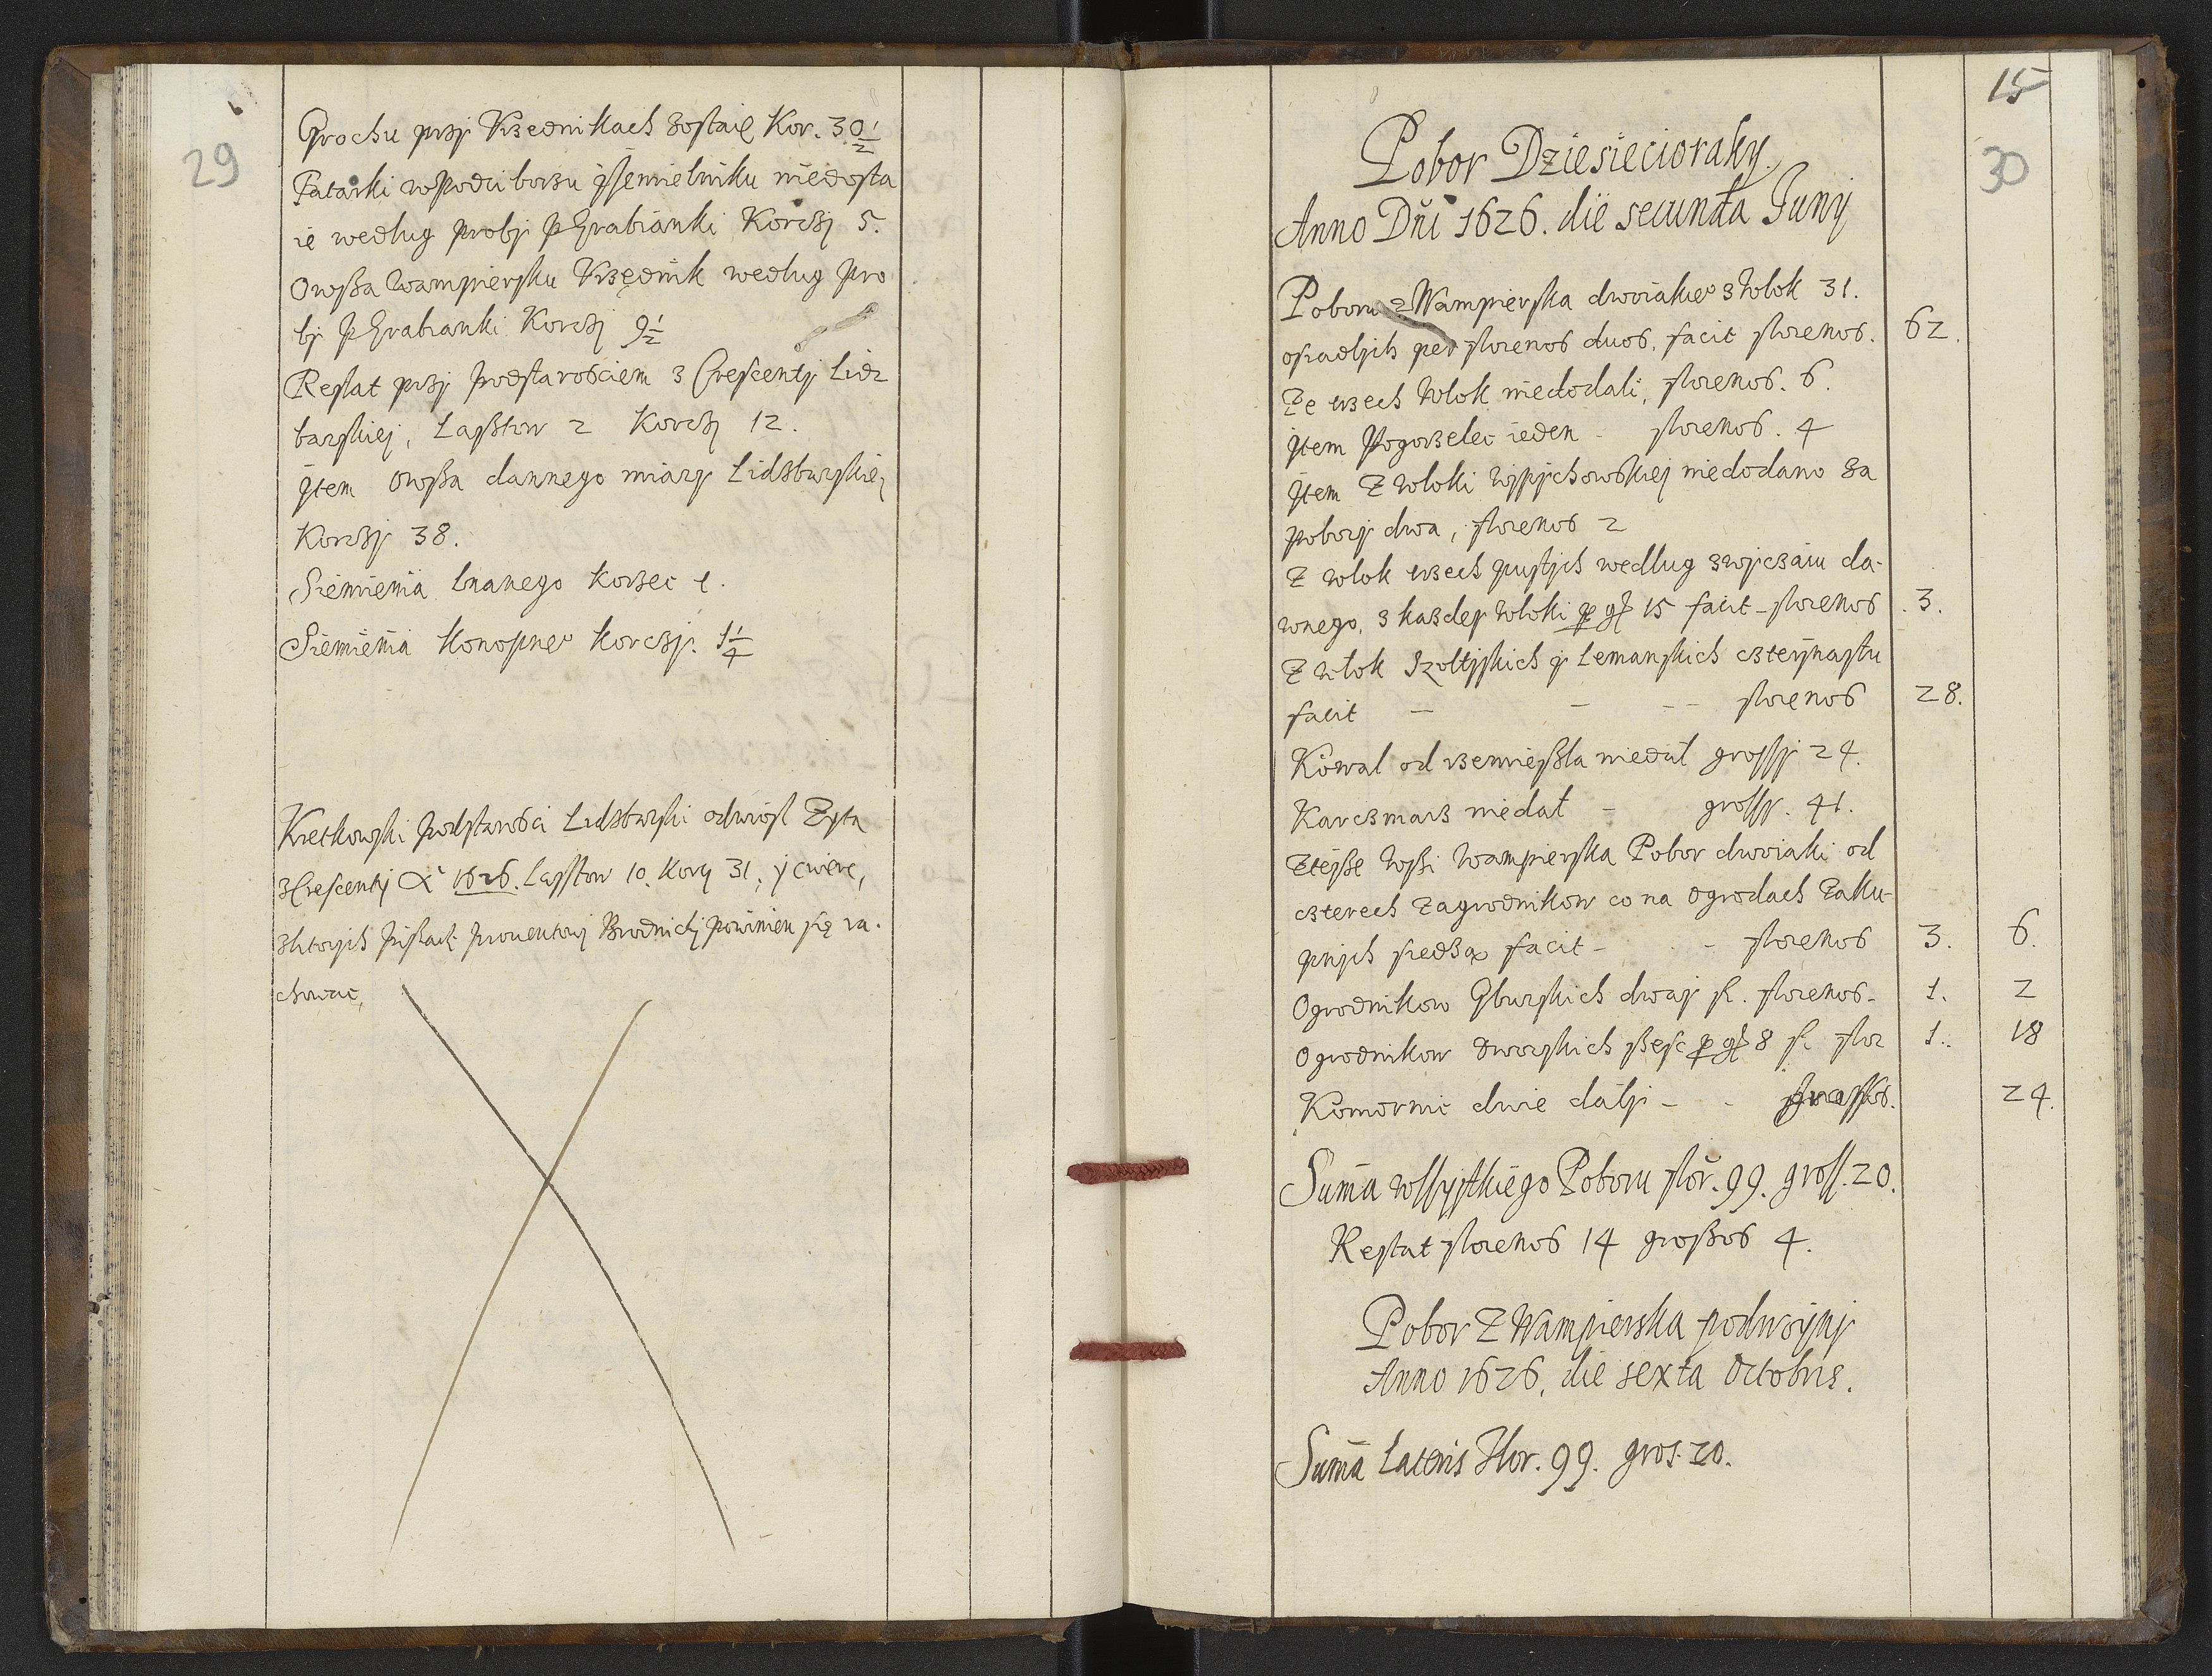 29
Grochu przÿ Vrzednikach zostaię Kor. 30 1/2
Tatarki w Podciborzu ÿ Jemielniku niedosta
ie według probÿ P Grabianki Korczÿ 5.
Owßa Wampiersku Vrzędnik według pro
bÿ P Grabianki Korczÿ 9 1/2
Restat przÿ Podstarościem z Crescentÿ Lidz
barskieÿ, Łaßtow 2 Korczÿ 12.
Jtem Owßa dannego miarÿ Lidzbarskieÿ
Korczÿ 38.
Siemienia lnanego korzec 1.
Siemienia Konopne° korczÿ. 1 1/4
Kretkowski Podstarości Lidzbarski odwiosł Zyta
z Crescentÿ Aᵒ 1626. Łasstow 10. Korcy 31, ÿ cwierc,
z ktorÿch Pißarz Prouentowÿ Brodnickÿ powinien się ra.
chowac,
15
30
Pobor Dziesiecioraky
Anno Dñi 1626. die secunda Junÿ
Poboru z Wampierska dwoiakie° z Włok 31.
osiadłÿch per florenos duos, facit florenos. 62.
Ze trzech Włok niedodali, florenos. 6.
Jtem Pogorzelec ieden - florenos. 4
Jtem Z Włoki Wÿpÿchowskieÿ niedodano za
poborÿ dwa, florenos 2
Z włok trzech pustÿch wedlug zwÿczaiu da-
wnego, z kazdeÿ Włoki p gʳ 15 facit - florenos . 3.
Z włok Szołtÿskich ÿ Lemanskich czterÿnastu
facit - - -- florenos 28.
Kowal od rzemießła niedał grossÿ 24.
Karczmarz niedał - grossÿ. 41.
Zteÿße Wßi Wampierska Pobor dwoiaki od
czterech Zagrodnikow co na Ogrodach Zaku-
pnÿch siedzą facit - - florenos 3. 6.
Ogrodnikow Gburskich dwaÿ ft. florenos - 1. 2
Ogrodnikow Dworskich ßesc p gʳ 8 ft flor 1.. 18
Komornic dwie dałÿ - - grossos. 24.
Sum̃a wssÿstkiego Poboru flor̃. 99. gross. 20.
Restat florenos 14 großos 4.
Pobor Z Wampierska podwoÿnÿ
Anno 1626. die sexta Octobris.
Sum̃a Lateris Flor. 99. gros. 20.